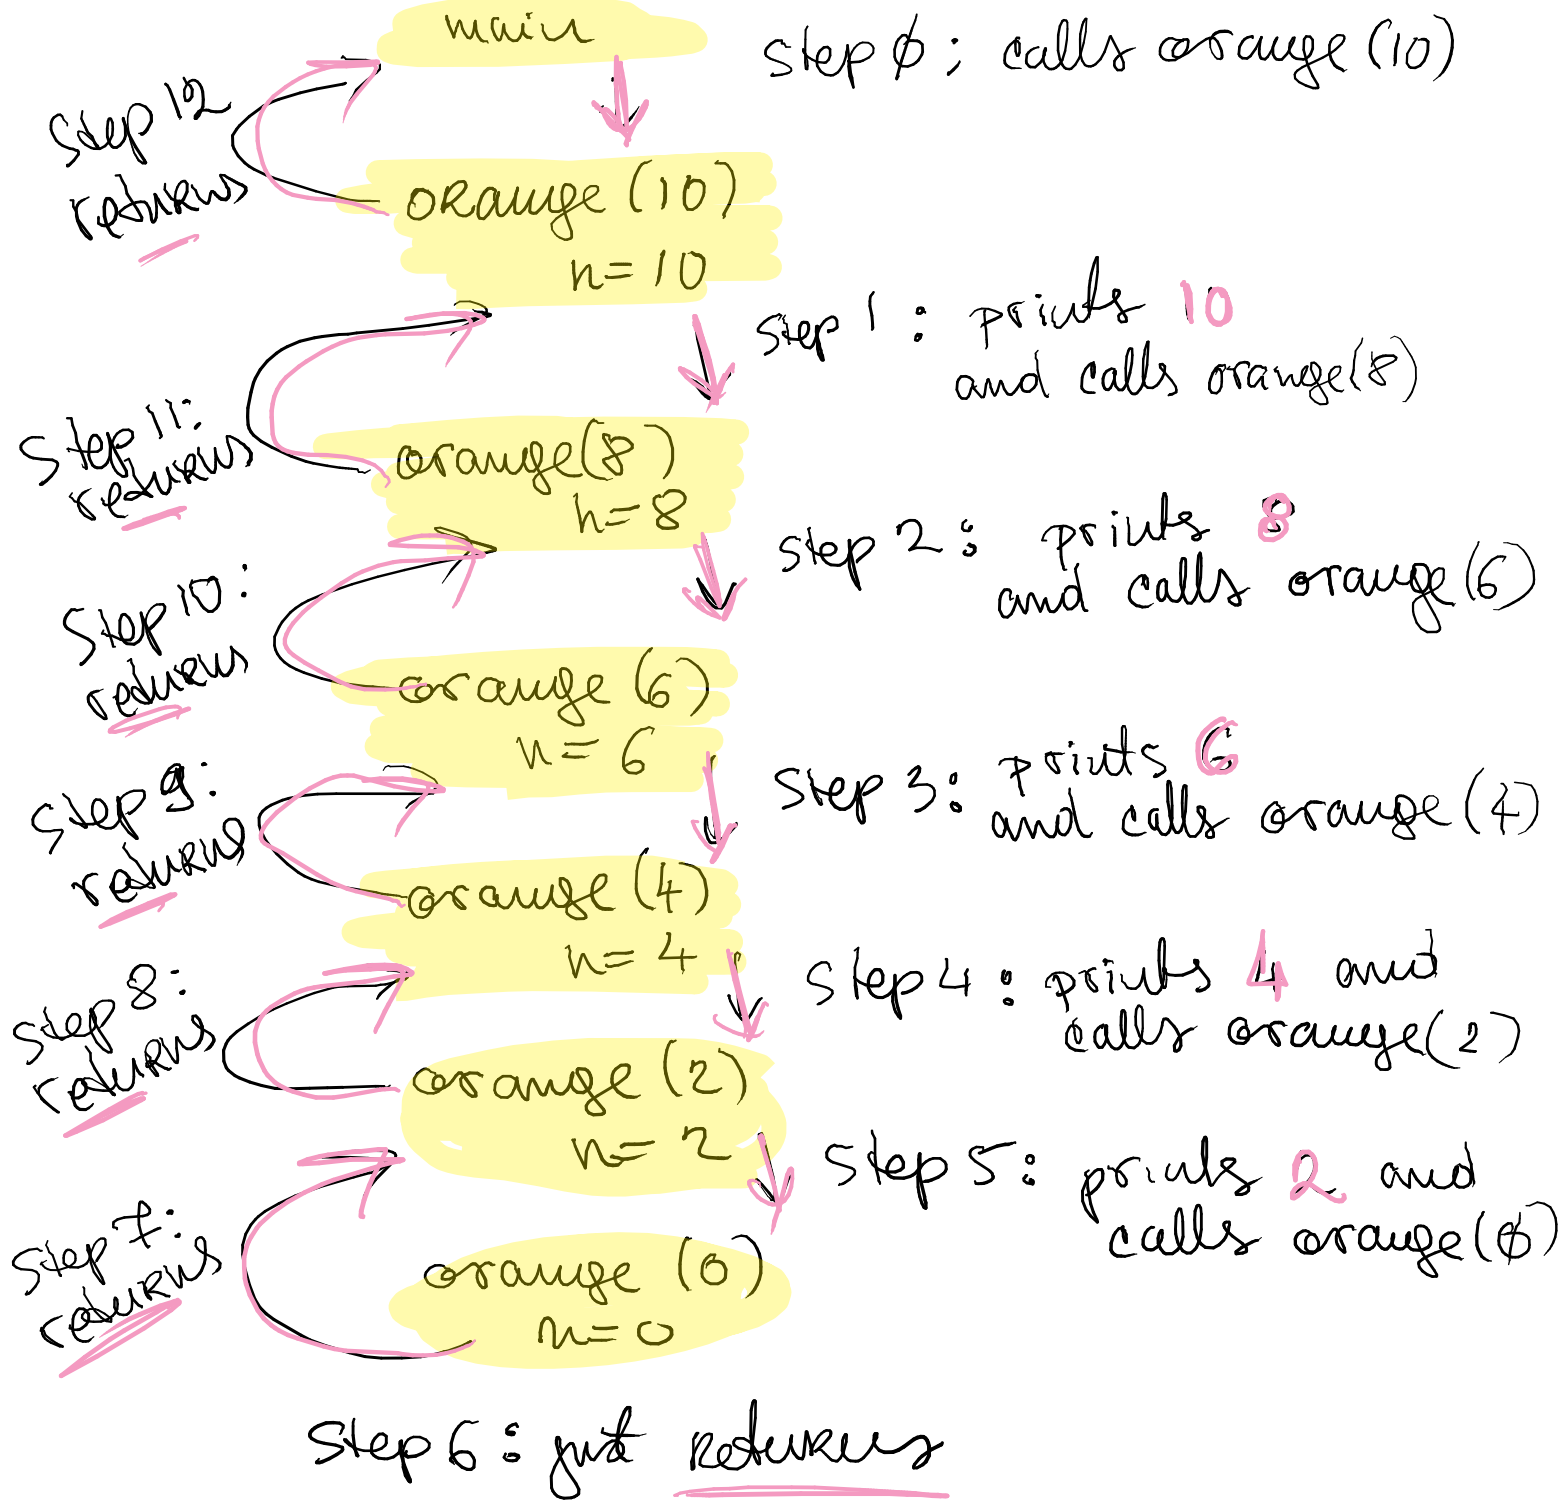 main
Step 0; calls orange (10)
Step 12
returns
orange (10)
n = 10
Step 1: prints 10
and calls orange(8)
Step 11:
returns
orange(8)
n = 8
Step 2: prints 8
and calls orange (6)
Step 10:
returns
orange (6)
n = 6
Step 3: prints 6
and calls orange (4)
Step 9:
returns
orange (4)
n = 4
Step 4: prints 4 and
calls orange(2)
Step 8:
returns
orange (2)
n = 2
Step 5: prints 2 and
calls orange(0)
Step 7:
returns
orange (0)
n = 0
Step 6: just returns